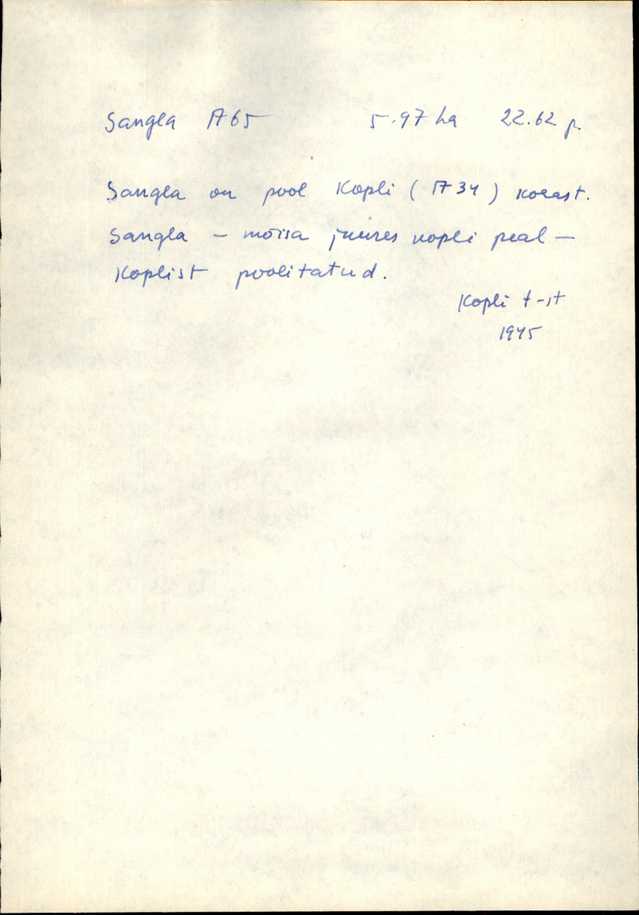 Sangla A65 5.97 ha 22.62 p.
Sangla on pool Kopli (A34) kohast.
Sangla – mõisa juures kopli peal –
Koplist poolitatud.
Kopli t-st
1945